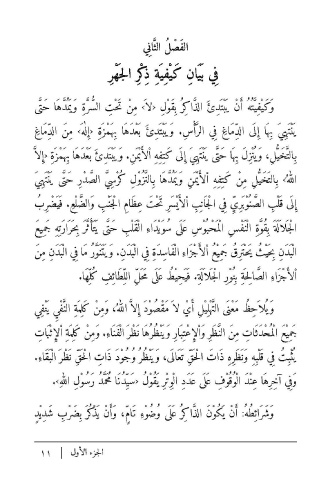 الفَصْلُ الثَّانِي
فِي بَيَانِ كَيْفِيَةِ ذِكْرِ الجَهْرِ
وَكَيْفِيَّتُهُ أَنْ يَبْتَدِئَ الذَّاكِرُ بِقَولِ ‹لَا› مِنْ تَحْتِ السُّرَّةِ وَيَمُدَّهَا حَتَّى
يَنْتَهِيَ بِهَا إِلَى الدِّمَاغِ فِي الرَّأْسِ. وَيَبْتَدِئَ بَعْدَهَا بِهَمْزَةِ ‹إِلَهَ› مِنَ الدِّمَاغِ
بِالتَّخَيُّلِ، وَيُنْزِلَ بِهَا حَتَّى يَنْتَهِيَ إِلَى كَتِفِهِ الْأَيْمَنِ. وَيَبْتَدِئَ بَعْدَهَا بِهَمْزَةِ ‹إِلَّا
اللهُ› بِالتَّخَيُّلِ مِنْ كَتِفِهِ الْأَيْمَنِ وَيَمُدَّهَا بِالنُّزُولِ كُرْسِيَّ الصَّدْرِ حَتَّى يَنْتَهِيَ
إِلَى قَلْبِ الصَّنَوْبَرِيِّ فِي الجَانِبِ الْأَيْسَرِ تَحْتَ عِظَامِ الجَنْبِ وَالضِّلَعِ. فَيَضْرِبُ
الجَلَالَةَ بِقُوَّةِ النَّفَسِ المَحْبُوسِ عَلَى سُوَيْدَاءِ القَلْبِ حَتَّى يَتَأَثَّرَ بِحَرَارَتِهِ جَمِيعُ
البَدَنِ بِحَيْثُ يَحْتَرِقُ جَمِيعُ الْأَجْزَاءِ الفَاسِدَةِ فِي البَدَنِ. وَيَتَنَوَّرُ مَا فِي البَدَنِ مِنَ
الْأَجْزَاءِ الصَّالِحَةِ بِنُورِ الجَلَالَةِ. فَيُحِيطُ عَلَى مَحَلِّ اللَّطَائِفِ كُلِّهَا.
وَيُلَاحِظُ مَعْنَى التَّهْلِيلِ أَيْ لَا مَقْصُودَ إِلَّا اللهُ، وَمِنْ كَلِمَةِ النَّفْيِ يَنْفِي
جَمِيعَ المُحْدَثَاتِ مِنَ النَّظَرِ وَالْإِعْتِبَارِ وَيَنْظُرُهَا نَظَرَ الفَنَاءِ. وَمِنْ كَلِمَةِ الْإِثْبَاتِ
يُثْبِتُ فِي قَلْبِهِ وَنَظَرِهِ ذَاتَ الحَقِّ تَعَالَى، وَيَنْظُرُ وُجُودَ ذَاتِ الحَقِّ نَظَرَ البَقَاءِ.
وَفِي آخِرِهَا عِنْدَ الوُقُوفِ عَلَى عَدَدِ الوِتْرِ يَقُولُ ‹سَيِّدُنَا مُحَمَّدٌ رَسُولُ اللهِ›.
وَشَرَائِطُهُ: أَنْ يَكُونَ الذَّاكِرُ عَلَى وُضُوءٍ تَامٍّ، وَأَنْ يَذْكُرَ بِضَرْبٍ شَدِيدٍ
الجزء الأول | ١١